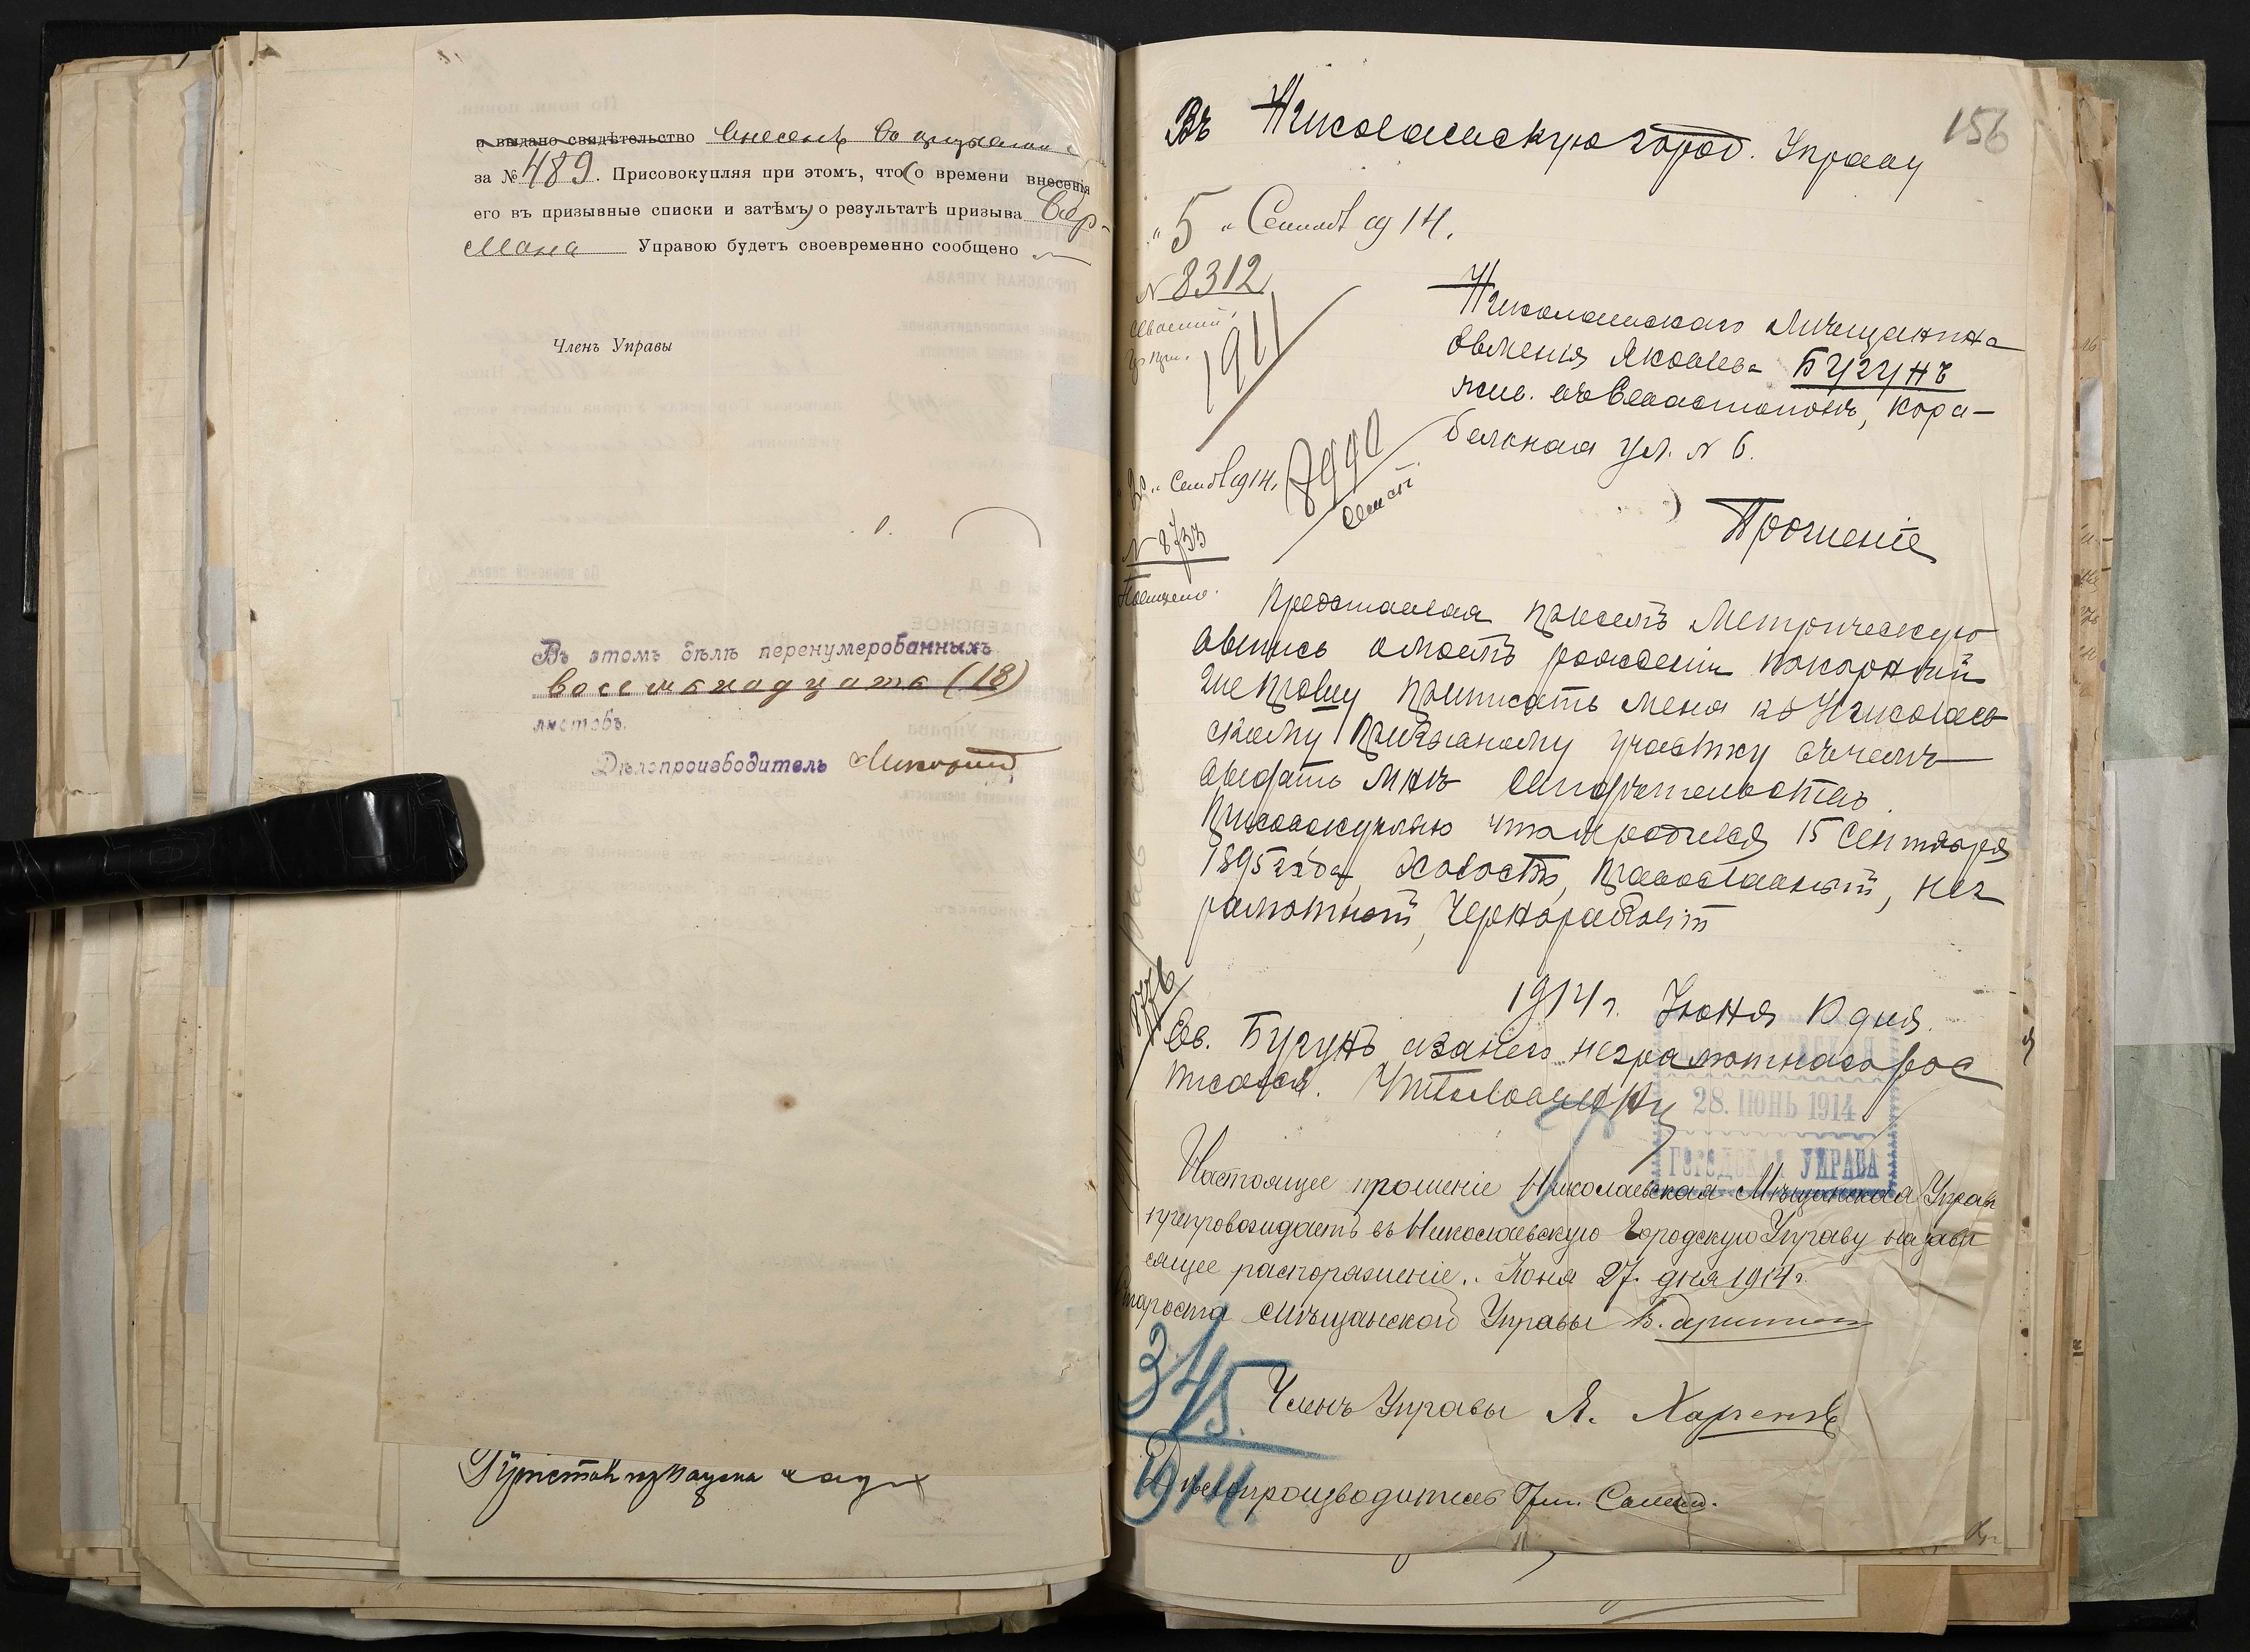 и выдано свидѣтельство внесенъ
за № 489. Присовокупляя при этомъ, что (о времени внесенія
его въ призывные списки и затѣмъ) о результатѣ призыва Бер-
мана Управою будетъ своевременно сообщено
Членъ Управы
Въ этомъ дѣлѣ перенумерованныхъ
восемьнадцать (18)
листовъ.
Дѣлопроизводитель
156
Въ Николаевскую город. Управу
"5" Сентяб 1914.
№ 8312
1911
Николаевскаго Мичщанина
Яковлева БУГУНЪ
жив. въ Севастополѣ, Кора-
бельная ул. № 6.
Сентяб 1914.
8990
№ 8733
Прошеніе
Представляя присемъ Метрическую
выпись о моемъ рожденіи покорнѣй
ше прошу приписать меня къ Николаев
скому призывному участку о чемъ
выдать мнѣ свидѣтельство.
Присовокупляю что я родился 15 Сентября
1895 года, холостъ, православный, нег
рамотный, Чернорабочій
1914 г. Іюня 10 дня.
Ев. Бугунъ а за него неграмотнаго рос
писался.
28. ІЮНЬ 1914
ГОРОДСКАЯ УПРАВА
Настоящее прошеніе Николаевская Мѣщанская Управа
препровождаетъ въ Николаевскую Городскую Управу на зави
сящее распоряженіе. Іюня 27 дня 1914 г.
Староста Мѣщанской Управы
345.
Членъ Управы Я.
1914.
Дѣлопроизводитель